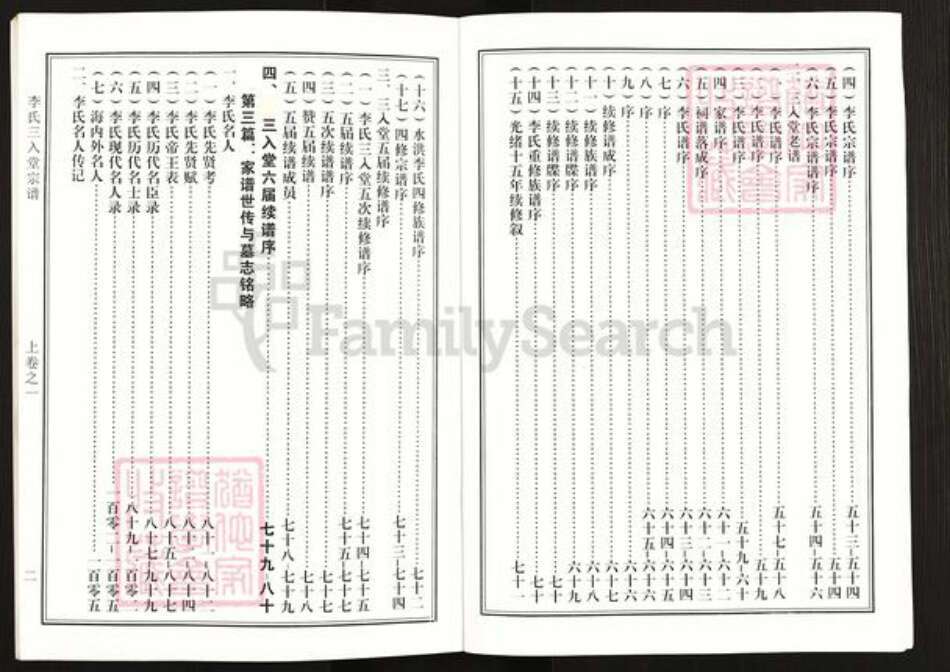 （四）李氏宗谱序 五十三－五十四
（五）李氏宗谱序 五十四
（六）李氏宗谱序 五十四－五十六
三入堂老谱
李氏谱序 五十七－五十八
李氏谱序 五十九
（三）李氏谱序 五十九－六十
（四）家谱序 六十一－六十二
（五）祠谱落成序 六十二－六十三
（六）李氏谱序 六十三－六十四
（七）序 六十四－六十五
（八）序 六十五－六十六
（九）序 六十六
（十）续修谱成序
（十一）续修族谱序 六十八
（十二）续修谱牒序 六十九
（十三）续修谱牒序
（十四）李氏重修族谱序 七十
（十五）光绪十五年续修叙 七十一
（十六）水洪李氏四修族谱序 七十二
（十七）四修宗谱序 七十三－七十四
三、三入堂五届续修谱序
（一）李氏三入堂五次续修谱序 七十四－七十五
（二）五届续谱序 七十五－七十七
（三）五次续谱谱序 七十七
（四）赞五届续谱 七十八
（五）五届续谱成员 七十八－七十九
四、三入堂六届续谱序 七十九－八十
第三篇、家谱世传与墓志铭略
一、李氏名人
（一）李氏先贤考 八十一－八十二
（二）李氏先贤赋 八十二－八十四
（三）李氏帝王表 八十五－八十七
（四）李氏历代名臣录 八十七－八十九
（五）李氏历代名士录 八十九－一百零二
（六）李氏现代名人录 一百零二－一百零五
（七）海内外名人 一百零五
二、李氏名人传记
李氏三入堂宗谱
上卷之一
二
FamilySearch